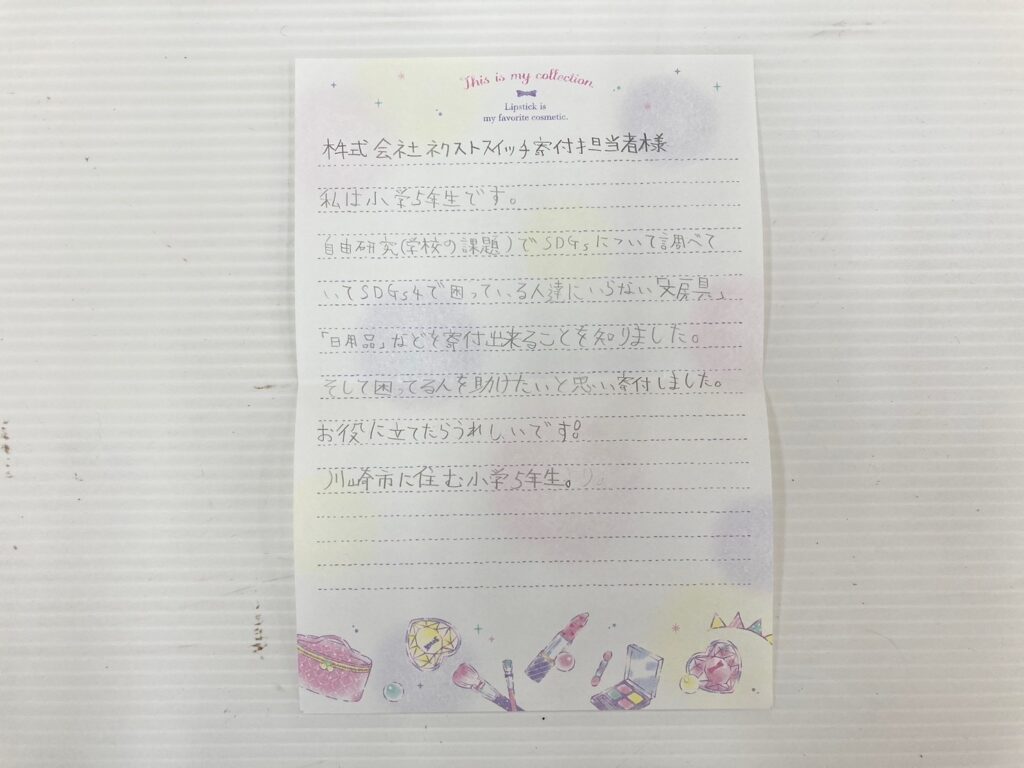 This is my collection.
Lipstick is
my favorite cosmetic.
株式会社ネクストスイッチ寄付担当者様
私は小学5年生です。
自由研究(学校の課題)でSDGsについて調べて
いてSDGs4で困っている人達にいらない「文房具」
「日用品」などを寄付出来ることを知りました。
そして困ってる人を助けたいと思い寄付しました。
お役に立てたらうれしいです!
川崎市に住む小学5年生。